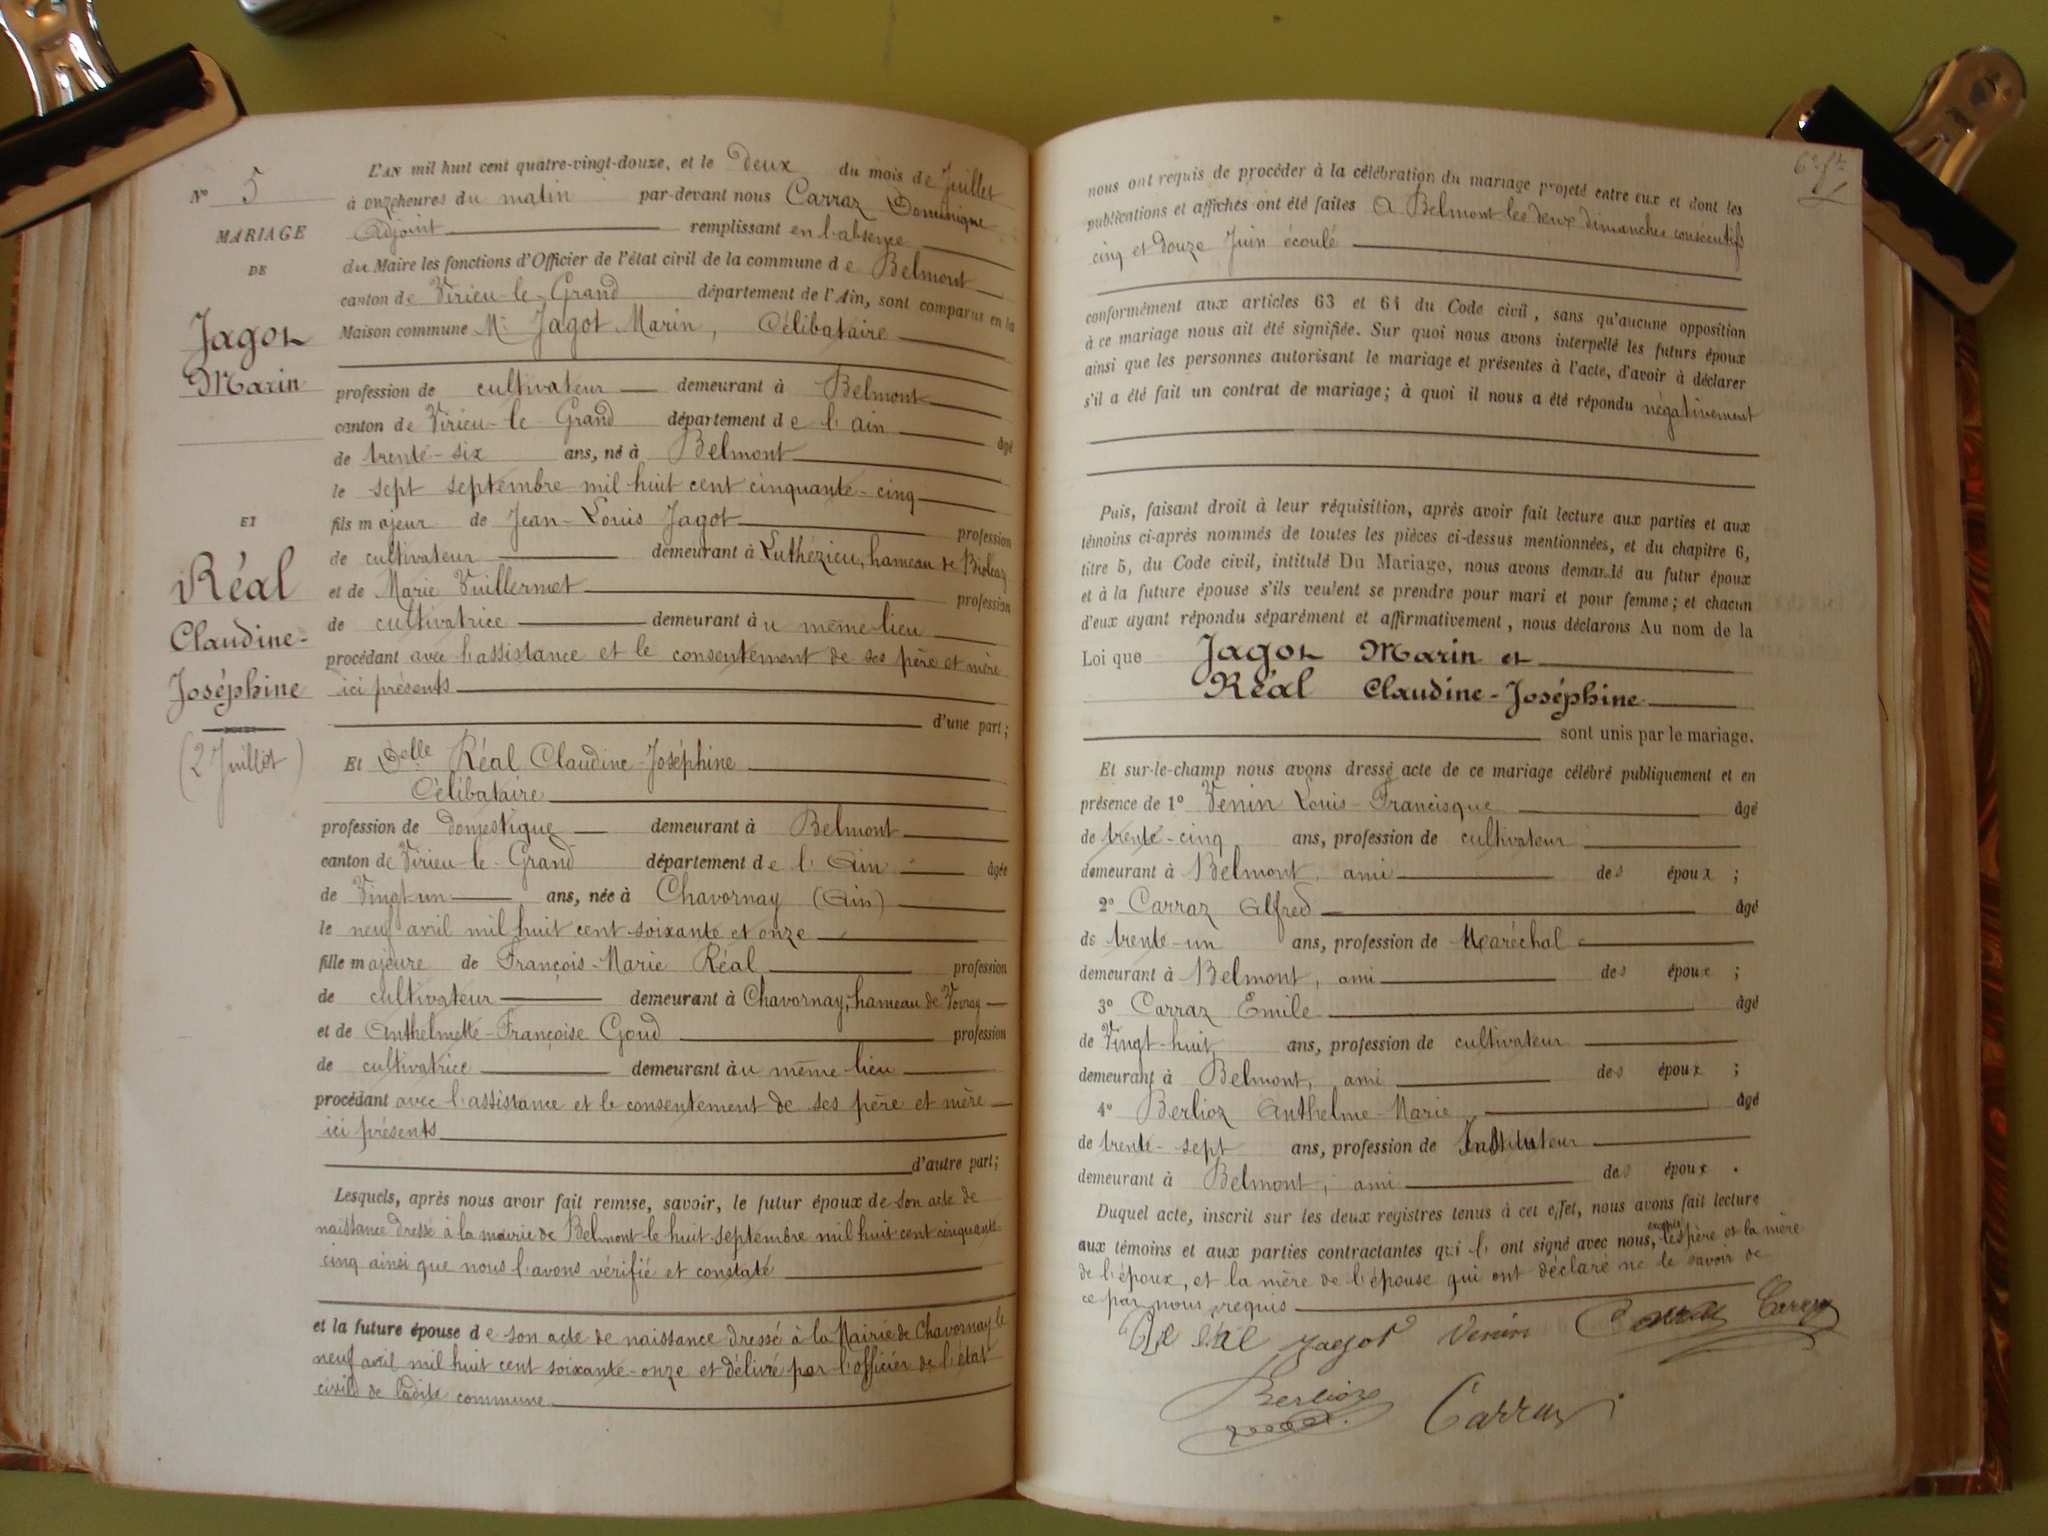 N° 5
MARIAGE
DE
Jagot
Marin
ET
Réal
Claudine-
Joséphine
(2 Juillet)
L'AN mil huit cent quatre-vingt-douze, et le deux du mois de Juillet
à onze heures du matin par-devant nous Carraz Dominique
Adjoint remplissant en l'absence
du Maire les fonctions d'Officier de l'état civil de la commune de Belmont
canton de Virieu-le-Grand département de l'Ain, sont comparus en la
Maison commune Mr Jagot Marin, Célibataire
profession de cultivateur demeurant à Belmont
canton de Virieu-le-Grand département de l'ain âgé
de trente-six ans, né à Belmont
le sept septembre mil huit cent cinquante-cinq
fils majeur de Jean-Louis Jagot profession
de cultivateur demeurant à Luthézieu, hameau de Bioleaz
et de Marie Vuillermet profession
de cultivatrice demeurant au même lieu
procédant avec l'assistance et le consentement de ses père et mère
ici présents
d'une part;
Et Delle Réal Claudine-Joséphine
Célibataire
profession de domestique demeurant à Belmont
canton de Virieu-le-Grand département de l'Ain âgée
de Vingt un ans, née à Chavornay (Ain)
le neuf avril mil huit cent soixante et onze
fille majeure de François-Marie Réal profession
de cultivateur demeurant à Chavornay, hameau de Vovray
et de Anthelmette-Françoise Goud profession
de cultivatrice demeurant au même lieu
procédant avec l'assistance et le consentement de ses père et mère
ici présents
d'autre part;
Lesquels, après nous avoir fait remise, savoir, le futur époux de son acte de
naissance dressé à la mairie de Belmont le huit septembre mil huit cent cinquante
cinq ainsi que nous l'avons vérifié et constaté
et la future épouse de son acte de naissance dressé à la Mairie de Chavornay le
neuf avril mil huit cent soixante-onze et délivré par l'officier de l'état
civil de ladite commune
nous ont requis de procéder à la célébration du mariage projeté entre eux et dont les
publications et affiches ont été faites à Belmont les deux dimanches consécutifs
cinq et douze Juin écoulé
conformément aux articles 63 et 64 du Code civil, sans qu'aucune opposition
à ce mariage nous ait été signifiée. Sur quoi nous avons interpellé les futurs époux
ainsi que les personnes autorisant le mariage et présentes à l'acte, d'avoir à déclarer
s'il a été fait un contrat de mariage; à quoi il nous a été répondu négativement
Puis, faisant droit à leur réquisition, après avoir fait lecture aux parties et aux
témoins ci-après nommés de toutes les pièces ci-dessus mentionnées, et du chapitre 6,
titre 5, du Code civil, intitulé Du Mariage, nous avons demandé au futur époux
et à la future épouse s'ils veulent se prendre pour mari et pour femme; et chacun
d'eux ayant répondu séparément et affirmativement, nous déclarons Au nom de la
Loi que Jagot Marin et
Réal Claudine-Joséphine
sont unis par le mariage.
Et sur-le-champ nous avons dressé acte de ce mariage célébré publiquement et en
présence de 1° Venin Louis-Francisque âgé
de trente-cinq ans, profession de cultivateur
demeurant à Belmont, ami des époux ;
2° Carraz Alfred âgé
de trente-un ans, profession de Maréchal
demeurant à Belmont, ami des époux ;
3° Carraz Emile âgé
de Vingt-huit ans, profession de cultivateur
demeurant à Belmont, ami des époux ;
4° Berlioz Anthelme-Marie âgé
de trente-sept ans, profession de Instituteur
demeurant à Belmont, ami des époux .
Duquel acte, inscrit sur les deux registres tenus à cet effet, nous avons fait lecture
aux témoins et aux parties contractantes qui l'ont signé avec nous, excepté les père et la mère
de l'époux, et la mère de l'épouse qui ont déclaré ne le savoir de
ce par nous requis
Jagot Venin Carraz Carraz
Berlioz Carraz